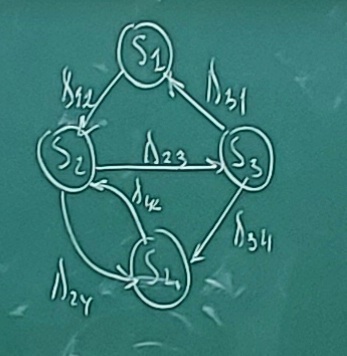 S1
λ12
λ31
S2
λ23
S3
λ42
λ34
S4
λ24